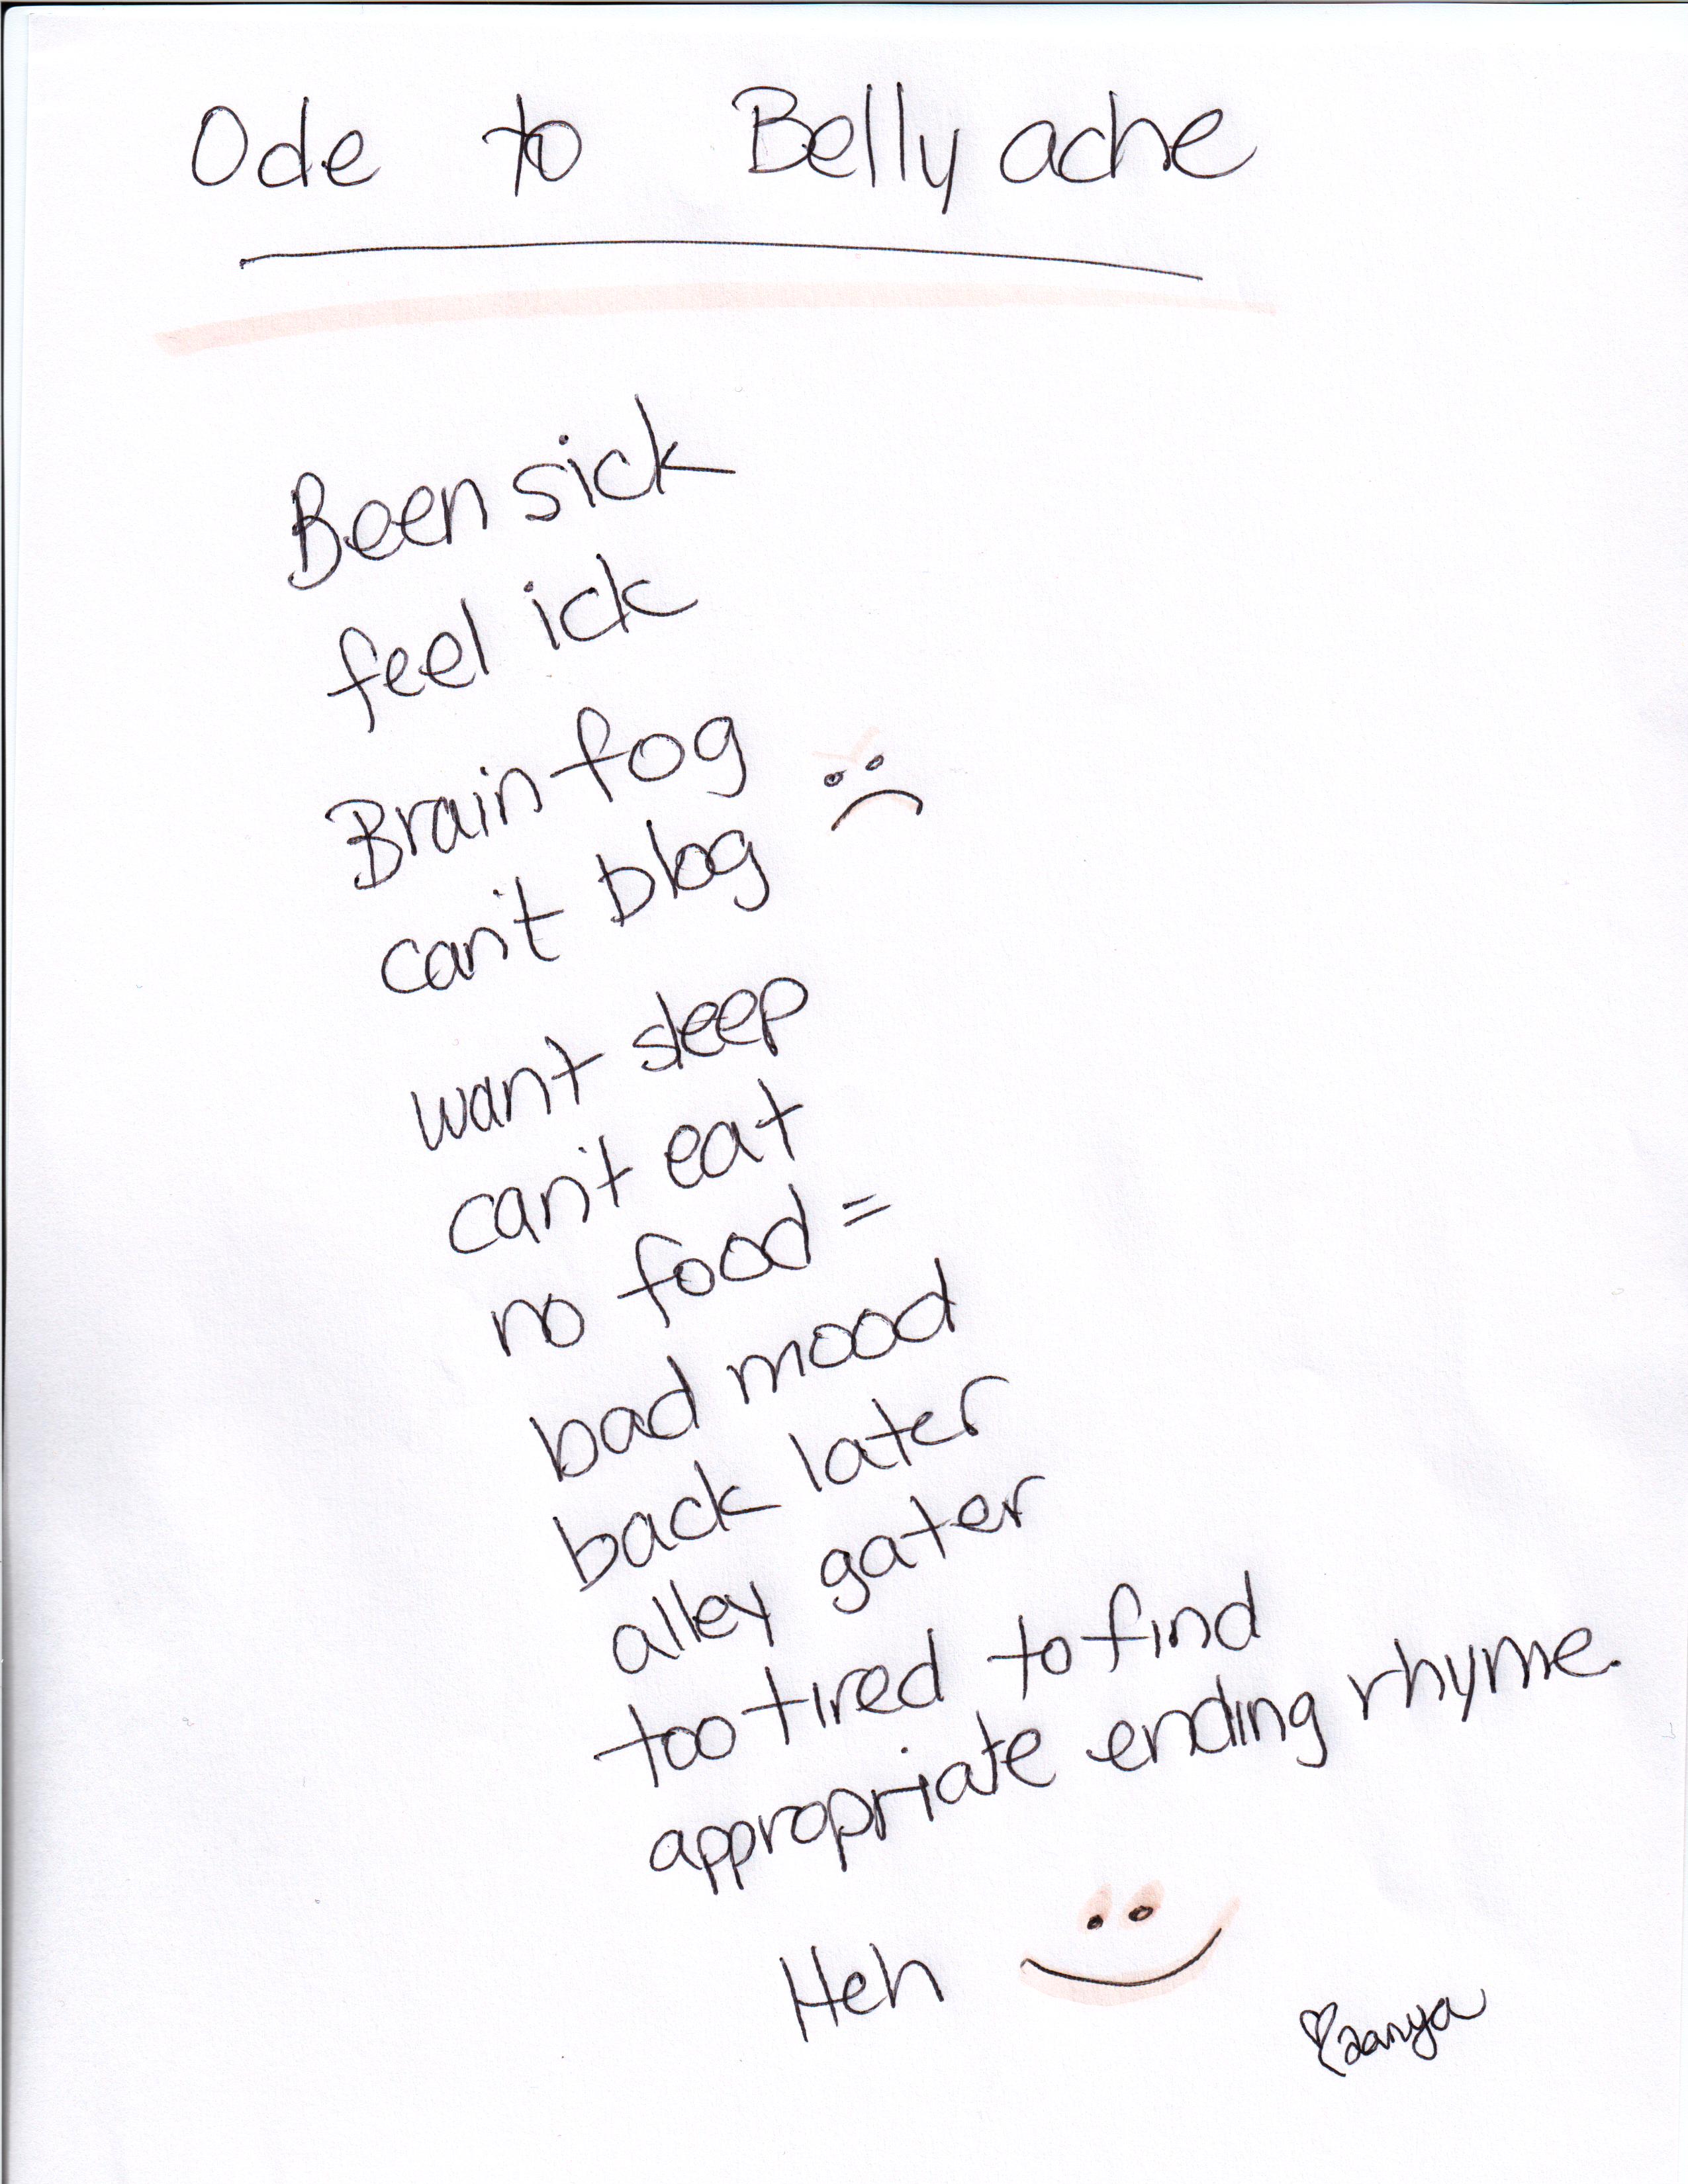 Ode to Belly ache
Been sick
feel ick
Brain fog
can't blog
want sleep
can't eat
no food =
bad mood
back later
alley gater
too tired to find
appropriate ending rhyme.
Heh